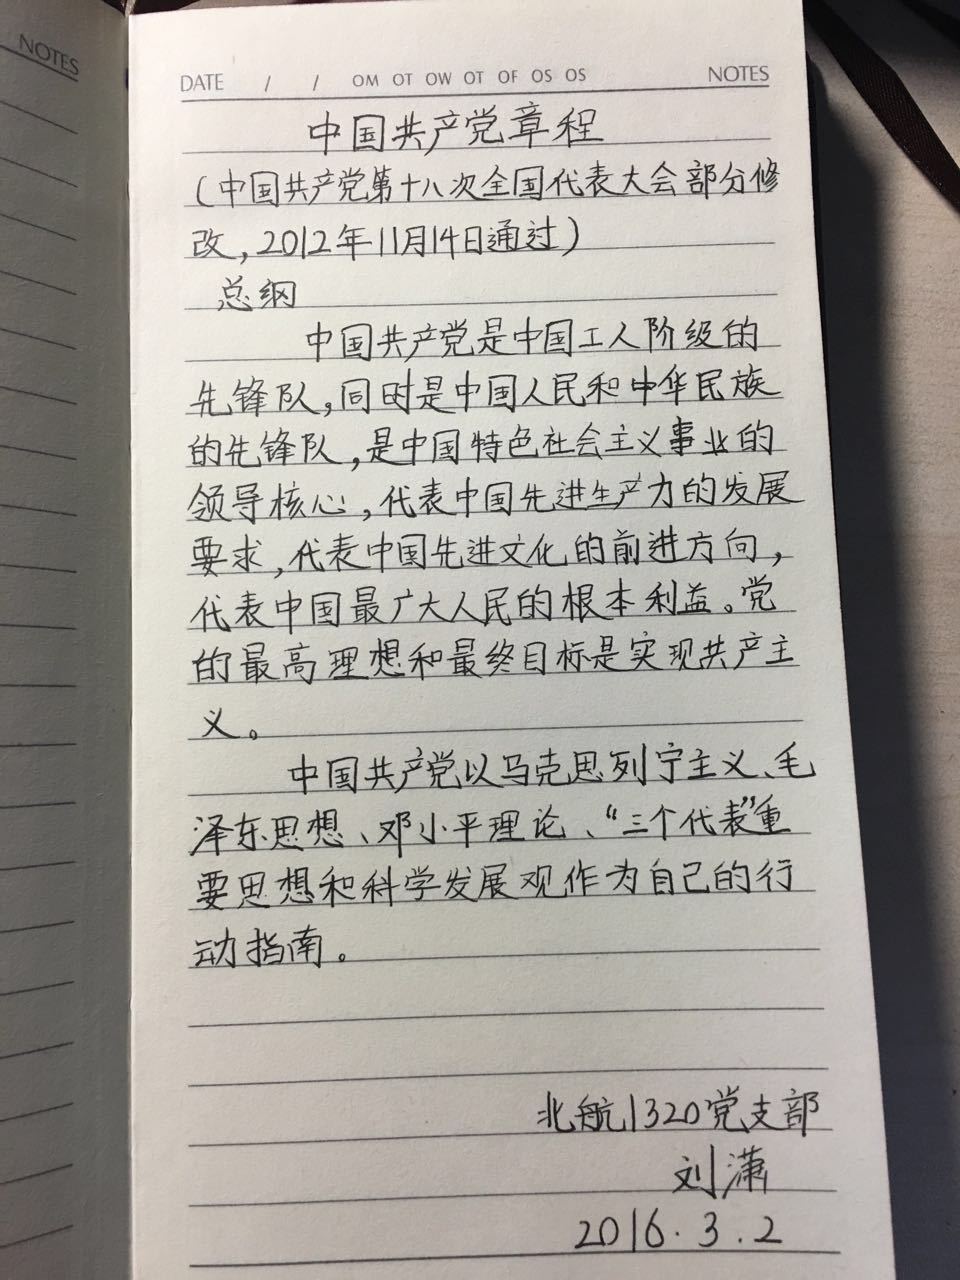 NOTES
DATE / / OM OT OW OT OF OS OS NOTES
中国共产党章程
(中国共产党第十八次全国代表大会部分修
改,2012年11月14日通过)
总纲
中国共产党是中国工人阶级的
先锋队,同时是中国人民和中华民族
的先锋队,是中国特色社会主义事业的
领导核心,代表中国先进生产力的发展
要求,代表中国先进文化的前进方向,
代表中国最广大人民的根本利益。党
的最高理想和最终目标是实现共产主
义。
中国共产党以马克思列宁主义、毛
泽东思想、邓小平理论、“三个代表”重
要思想和科学发展观作为自己的行
动指南。
北航1320党支部
刘潇
2016.3.2